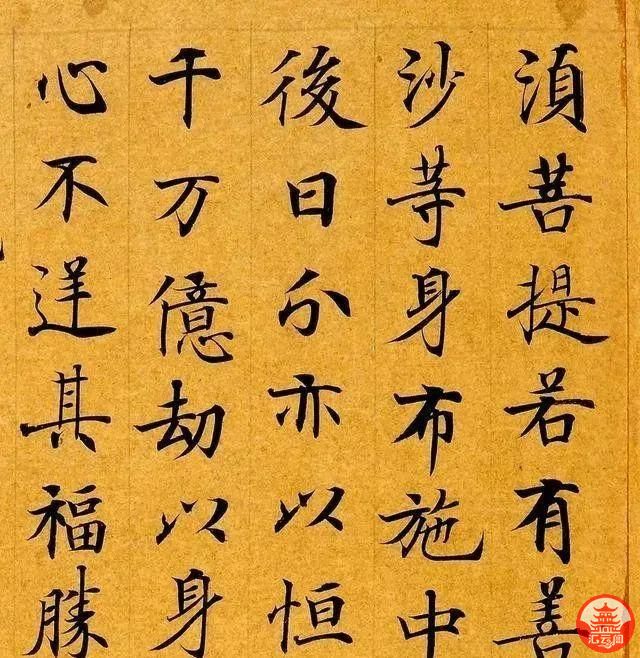 湏菩提若有善
沙䓁身布施中
後日分亦以恒
千万億劫以身
心不逆其福勝
汇云阁